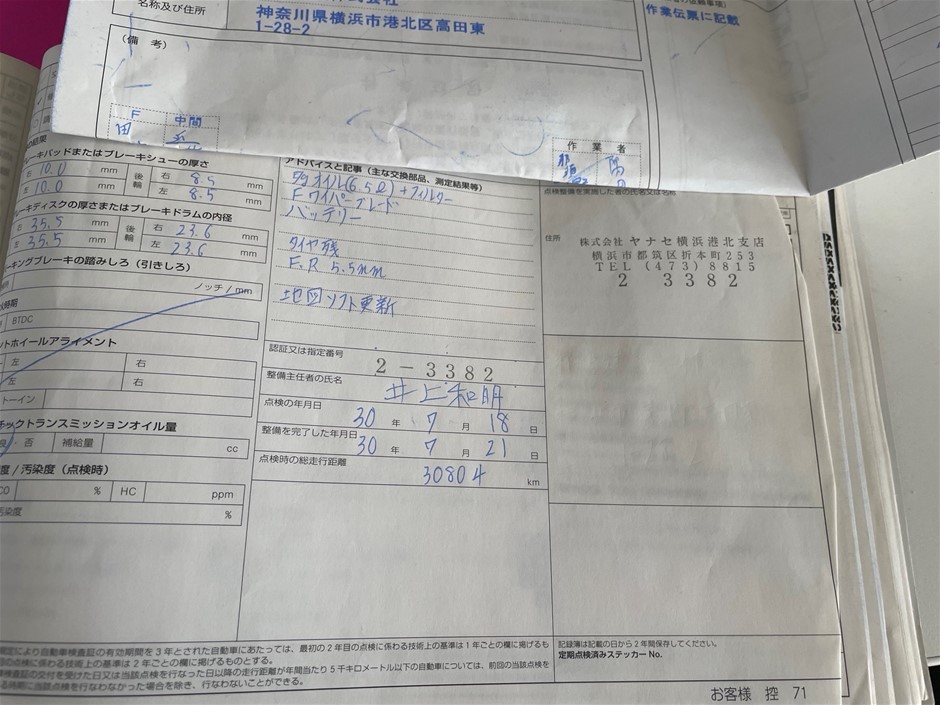 名称及び住所
神奈川県横浜市港北区高田東
1-28-2
作業伝票に記載
(備 考)
F
中間
田
作 業 者
ーキパッドまたはブレーキシューの厚さ
右 10.0 mm 後輪 右 8.5 mm
左 10.0 mm 左 8.5 mm
ーキディスクの厚さまたはブレーキドラムの内径
右 35.5 mm 後輪 右 23.6 mm
左 35.5 mm 左 23.6 mm
ーキングブレーキの踏みしろ(引きしろ)
ノッチ/mm
火時期
BTDC
ントホイールアライメント
左 右
左 右
トーイン
チックトランスミッションオイル量
良・否 補給量 cc
度/汚染度(点検時)
CO % HC ppm
汚染度 %
アドバイスと記事(主な交換部品、測定結果等)
オイル(6.5ℓ)+フィルター
Fワイパーブレード
バッテリー
タイヤ残
F.R 5.5mm
地図ソフト更新
認証又は指定番号
2-3382
整備主任者の氏名
井上和明
点検の年月日
30 年 7 月 18 日
整備を完了した年月日
30 年 7 月 21 日
点検時の総走行距離
30804 km
点検整備を実施した者の氏名又は名称
住所
株式会社 ヤナセ横浜港北支店
横浜市都筑区折本町253
TEL (473) 8815
2 3382
規定により自動車検査証の有効期間を3年とされた自動車にあたっては、最初の2年目の点検に係わる技術上の基準は1年ごとの欄に掲げるも
回の点検に係わる技術上の基準は2年ごとの欄に掲げるものとする。
検査証の交付を受けた日又は当該点検を行なった日以降の走行距離が年間当たり5千キロメートル以下の自動車については、前回の当該点検を
る時期に当該点検を行なわなかった場合を除き、行なわないことができる。
記録簿は記載の日から2年間保存してください。
定期点検済みステッカー No.
お客様 控 71